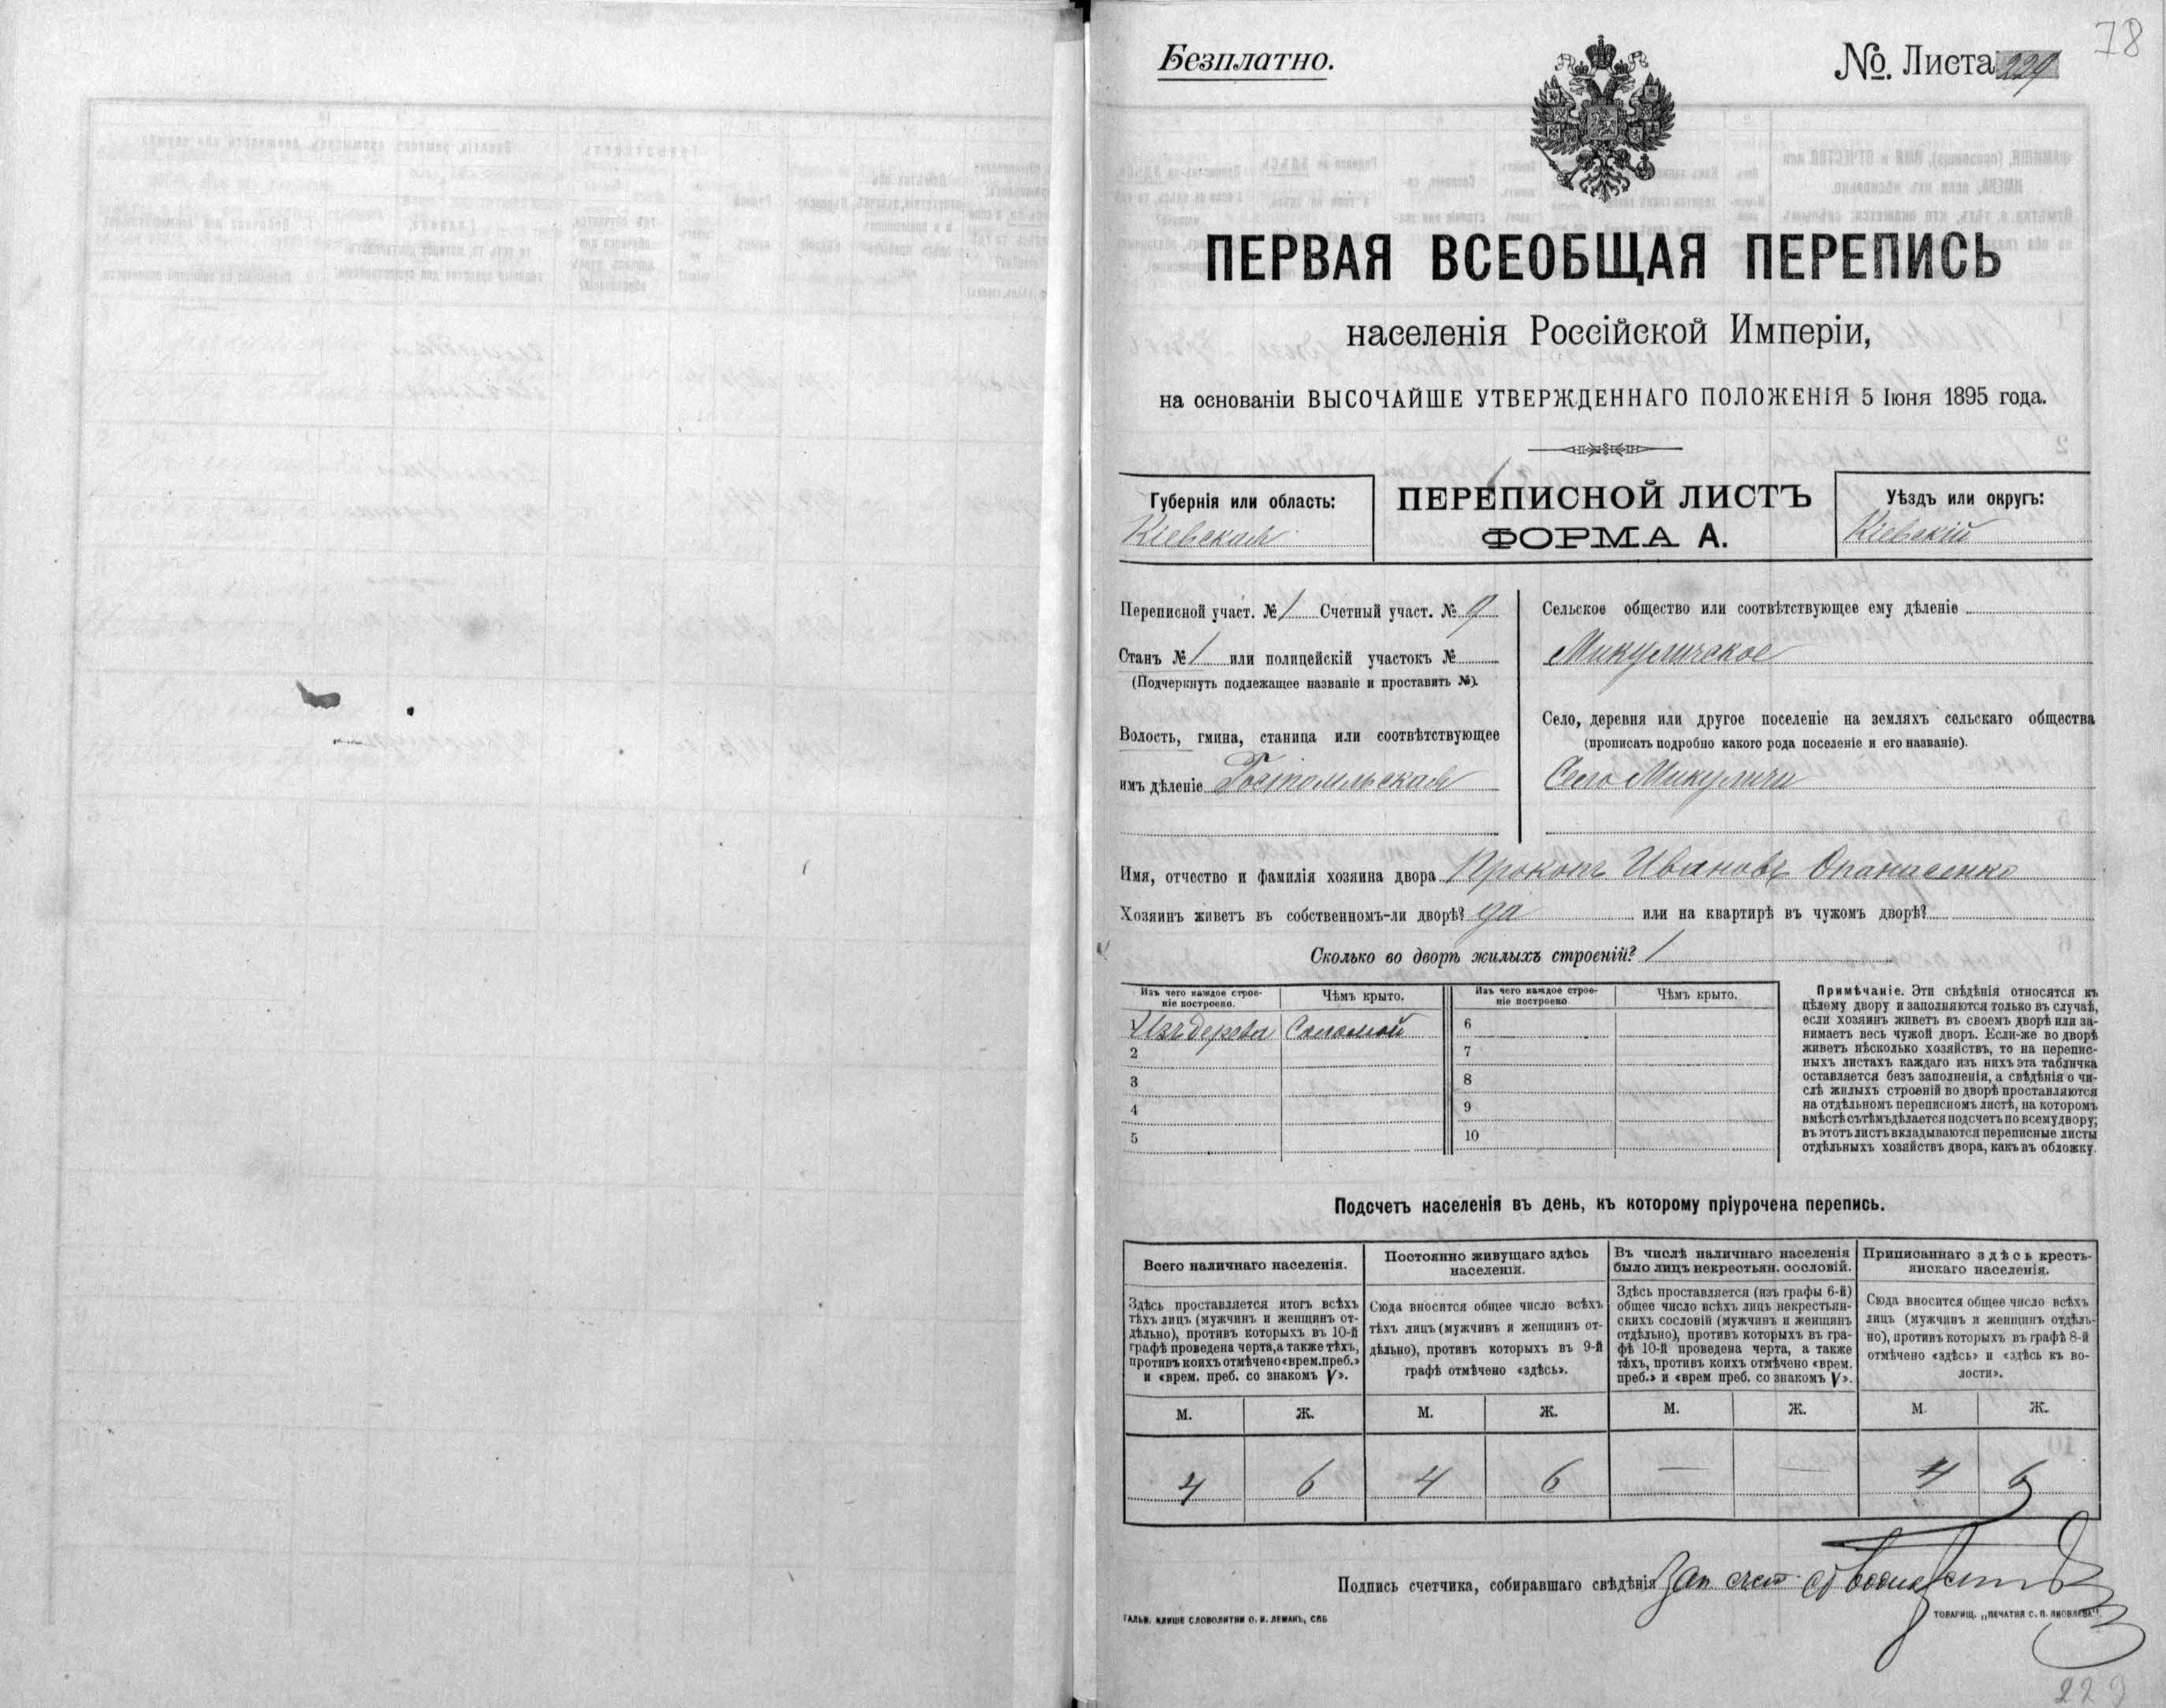 78
Безплатно.
№ Листа 229
ПЕРВАЯ ВСЕОБЩАЯ ПЕРЕПИСЬ
населенія Россійской Имперіи,
на основаніи ВЫСОЧАЙШЕ УТВЕРЖДЕННАГО ПОЛОЖЕНІЯ 5 Іюня 1895 года.
Губернія или область:
Кіевская
ПЕРЕПИСНОЙ ЛИСТЪ
ФОРМА А.
Уѣздъ или округъ:
Кіевскій
Переписной участ. № 1 Счетный участ. № 9
Станъ № 1 или полицейскій участокъ №
(Подчеркнуть подлежащее названіе и проставить №).
Волость, гмина, станица или соотвѣтствующее
имъ дѣленіе Гостомльская
Сельское общество или соотвѣтствующее ему дѣленіе
Микуличское
Село, деревня или другое поселеніе на земляхъ сельскаго общества
(прописать подробно какого рода поселеніе и его названіе).
Село Микуличи
Имя, отчество и фамилія хозяина двора Прокопъ Ивановъ Опанасенко
Хозяинъ живетъ въ собственномъ-ли дворѣ? да или на квартирѣ въ чужомъ дворѣ?
Сколько во дворѣ жилыхъ строеній? 1
Изъ чего каждое строе-
ніе построено.
Чѣмъ крыто.
Изъ чего каждое строе-
ніе построено
Чѣмъ крыто.
Изъ дерева Соломой
2
3
4
5
6
7
8
9
10
Примѣчаніе. Эти свѣдѣнія относятся къ
цѣлому двору и заполняются только въ случаѣ,
если хозяинъ живетъ въ своемъ дворѣ или за-
нимаетъ весь чужой дворъ. Если-же во дворѣ
живетъ нѣсколько хозяйствъ, то на перепис-
ныхъ листахъ каждаго изъ нихъ эта табличка
оставляется безъ заполненія, а свѣдѣнія о чи-
слѣ жилыхъ строеній во дворѣ проставляются
на отдѣльномъ переписномъ листѣ, на которомъ
вмѣстѣ съ тѣмъ дѣлается подсчетъ по всему двору;
въ этотъ листъ вкладываются переписные листы
отдѣльныхъ хозяйствъ двора, какъ въ обложку.
Подсчетъ населенія въ день, къ которому пріурочена перепись.
Всего наличнаго населенія.
Здѣсь проставляется итогъ всѣхъ
тѣхъ лицъ (мужчинъ и женщинъ от-
дѣльно), противъ которыхъ въ 10-й
графѣ проведена черта, а также тѣхъ,
противъ коихъ отмѣчено «врем. преб.»
и «врем. преб. со знакомъ V».
Постоянно живущаго здѣсь
населенія.
Сюда вносится общее число всѣхъ
тѣхъ лицъ (мужчинъ и женщинъ от-
дѣльно), противъ которыхъ въ 9-й
графѣ отмѣчено «здѣсь».
Въ числѣ наличнаго населенія
было лицъ некрестьян. сословій.
Здѣсь проставляется (изъ графы 6-й)
общее число всѣхъ лицъ некрестьян-
скихъ сословій (мужчинъ и женщинъ
отдѣльно), противъ которыхъ въ гра-
фѣ 10-й проведена черта, а также
тѣхъ, противъ коихъ отмѣчено «врем.
преб.» и «врем преб. со знакомъ V».
Приписаннаго здѣсь кресть-
янскаго населенія.
Сюда вносится общее число всѣхъ
лицъ (мужчинъ и женщинъ отдѣль-
но), противъ которыхъ въ графѣ 8-й
отмѣчено «здѣсь» и «здѣсь къ во-
лости».
М. Ж. М. Ж. М. Ж. М. Ж.
4 6 4 6 — — 4 6
Подпись счетчика, собиравшаго свѣдѣнія
ГАЛЬВ. КЛИШЕ СЛОВОЛИТНИ О. И. ЛЕМАНЪ, СПБ
ТОВАРИЩ. „ПЕЧАТНЯ С. П. ЯКОВЛЕВА".
229